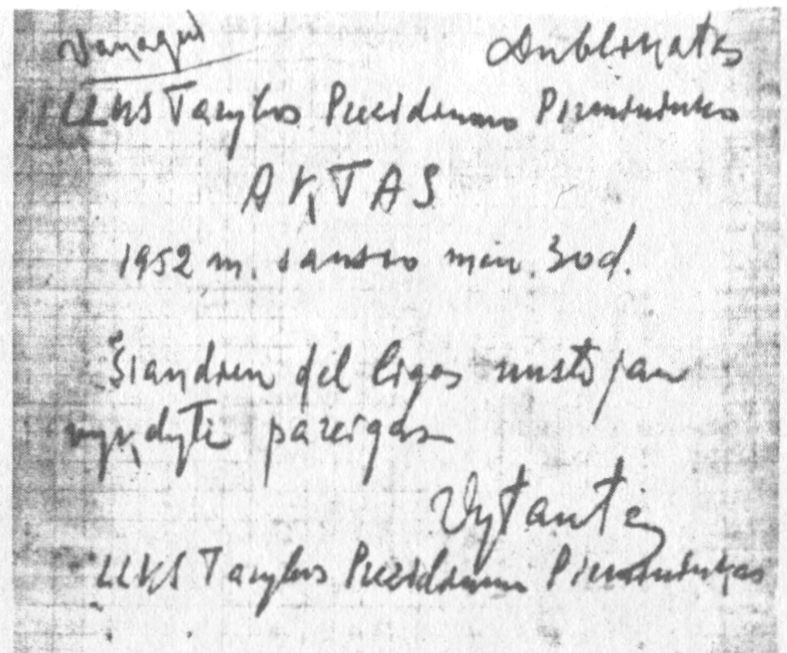 Vanagui Dublikatas
LLKS Tarybos Prezidiumo Pirmininko
AKTAS
1952 m. sausio mėn. 30 d.
Šiandien dėl ligos nustojau
vykdyti pareigas
Vytautas
LLKS Tarybos Prezidiumo Pirmininkas